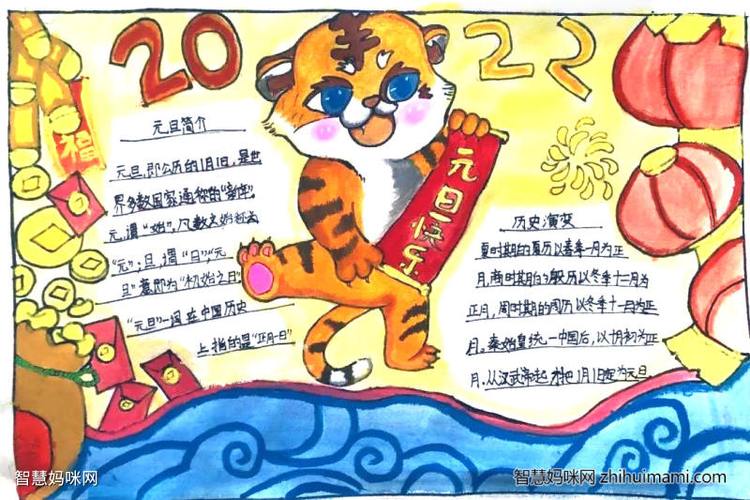 2022
福
元旦快乐
元旦简介
元旦,即公历的1月1日,是世
界多数国家通称的"新年"。
元,谓"始",凡数之始称为
"元";旦,谓"日";"元
旦"意即为"初始之日"
"元旦"一词在中国历史
上指的是"正月一日"
历史演变
夏时期的夏历以春季一月为正
月,商时期的殷历以冬季十二月为
正月,周时期的周历以冬季十一月为正
月。秦始皇统一中国后,以十月初为正
月.从汉武帝起 才把1月1日定为元旦
智慧妈咪网
智慧妈咪网 zhihuimami.com